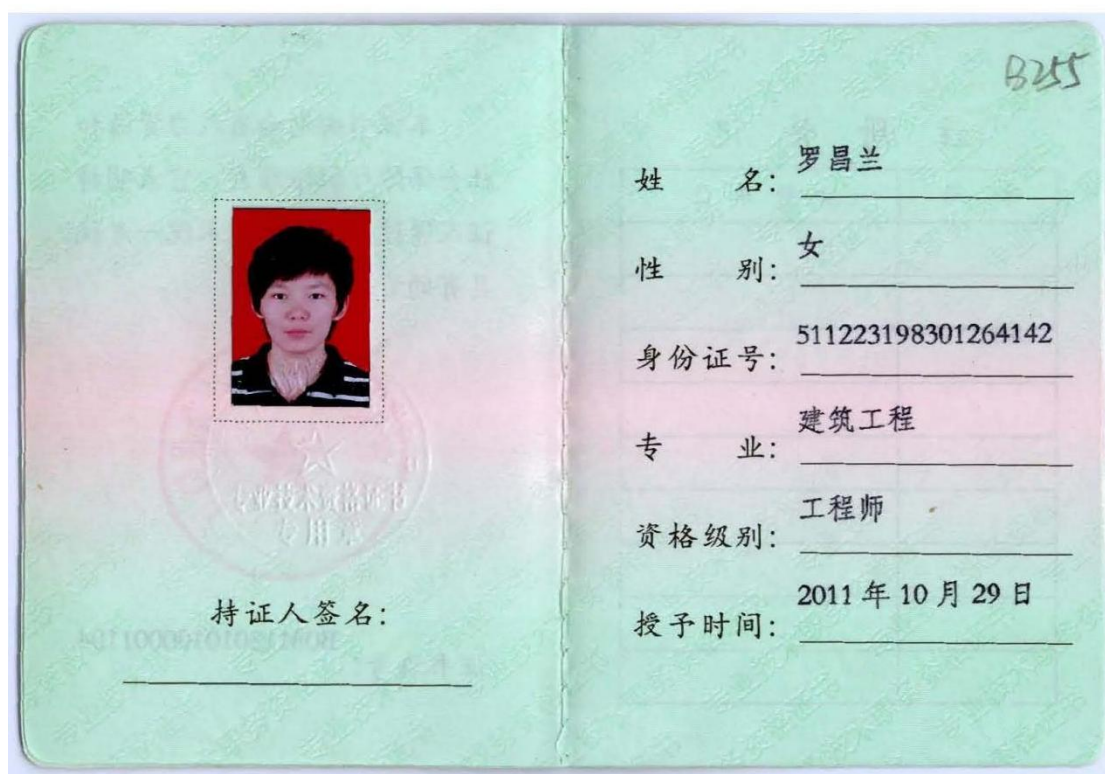 B255
专业技术资格证书
专用章
持证人签名:
姓 名: 罗昌兰
性 别: 女
身份证号: 511223198301264142
专 业: 建筑工程
资格级别: 工程师
授予时间: 2011 年 10 月 29 日